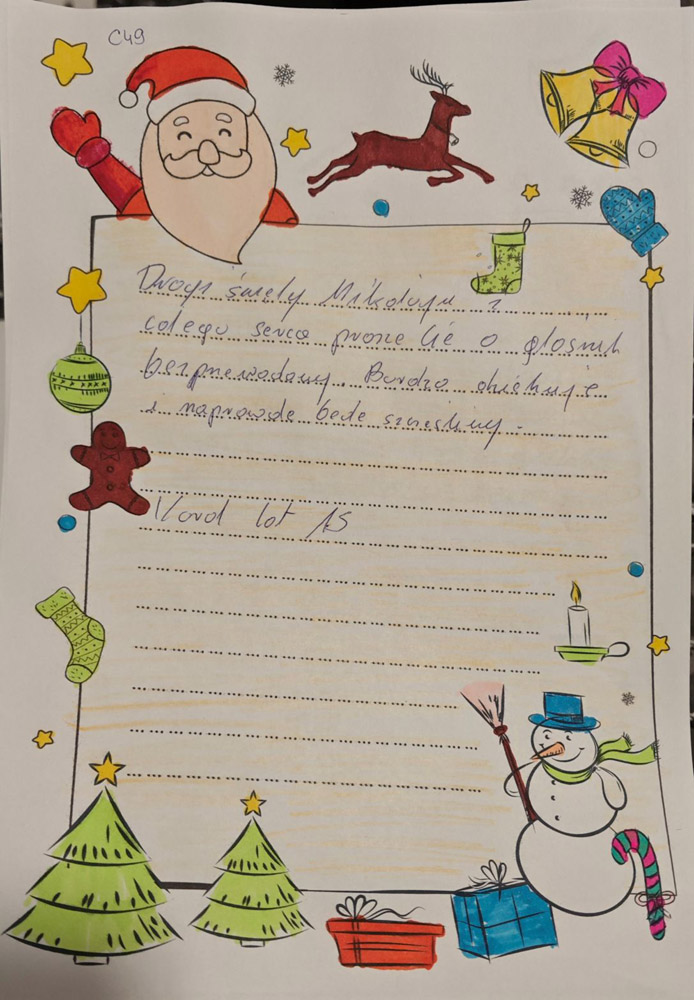 C49
Drogi świety Mikołaju z
całego serca prosze Cie o głosnik
bezprzewodowy. Bardzo dziekuje
i naprawde bede szczesliwy.
lat 15